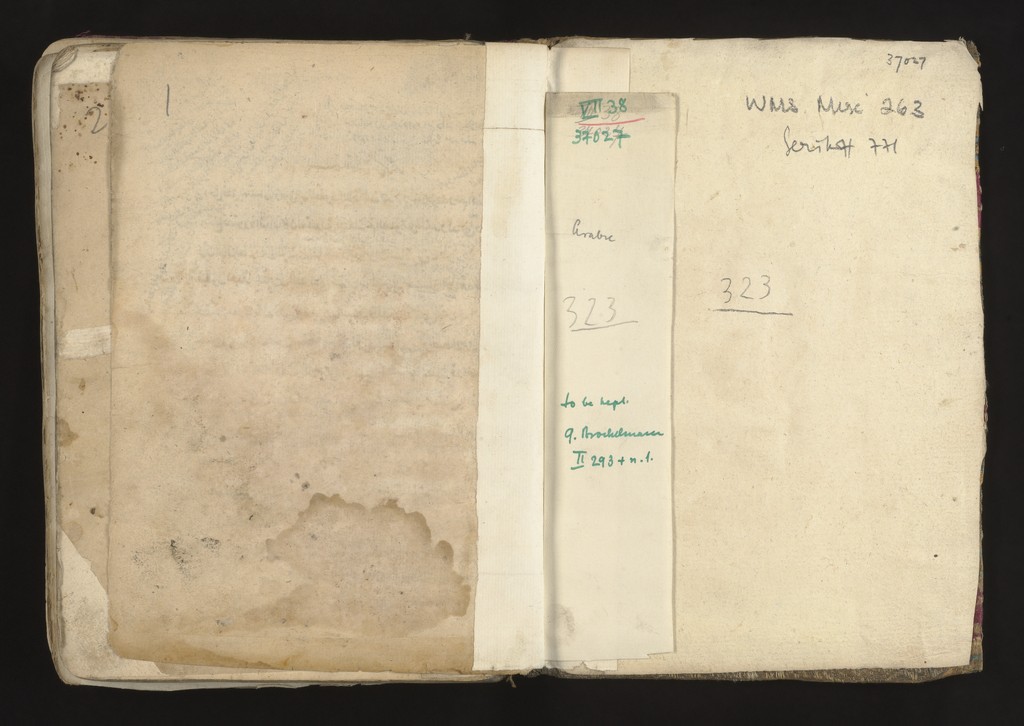 2
1
VII 38
37027
Arabic
323
to be kept.
q. Brockelmann
II 293 + n. 1.
37027
WMS. Misc 263
771
323